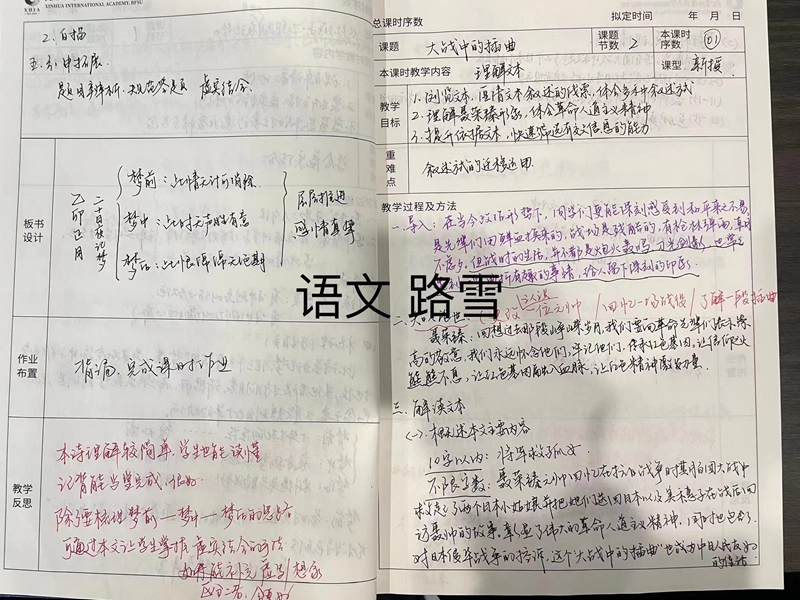 XINHUA INTERNATIONAL ACADEMY, BFSU
2. 白描
五、引申拓展
题目辨析、规范答题 虚实结合.
板书设计
乙卯正月二十日夜记梦
梦前：此情无计可消除.
梦中：此时无声胜有声
梦后：此恨绵绵无绝期
层层推进
感情真挚
作业布置
背诵、完成课时作业
教学反思
本诗理解较简单，学生也能读懂
记背能当堂完成，很好
除了要梳理梦前—梦中—梦后的思路
可通过本文让学生掌握虚实结合的方法
总课时序数 拟定时间 年 月 日
课题 大战中的插曲 课题节数 2 本课时序数 01
本课时教学内容 理解文本 课型 新授
教学目标
1. 浏览文本，厘清文本叙述的线索，体会多种叙述方式
2. 理解聂荣臻形象，体会革命人道主义精神
3. 提升依据文本，快速筛选有效信息的能力
重难点 叙述方式的选择运用
教学过程及方法
一、导入：在当今政治形势下，同学们更能深刻感受到和平来之不易，
是先辈们用鲜血换来的，战场是残酷的，有枪林弹雨，
不尽，但战时的生活，并不都是炮火轰鸣、刀光剑影，也有
有趣的事情，给人留下深刻的印象。
语文 路雪
认识一位元帅 / 回忆一场战役 / 了解一段插曲
聂荣臻：回想过去那段峥嵘岁月，我们要向革命先辈们表示崇
高的敬意，我们永远怀念他们、牢记他们，传承红色基因，让信仰之火
熊熊不息，让红色基因融入血脉，让红色精神激发力量.
三、解读文本
(一) 概述本文主要内容
10字以内：将军救孤女
不限字数：聂荣臻元帅回忆在抗日战争时期百团大战中
救起了两个日本小姑娘并把她们送回日本以及美穗子在战后回
访聂帅的故事，彰显了伟大的革命人道主义精神，同时也包含了
对日本侵华战争的控诉，这个"大战中的插曲"也成为中日人民友好
的佳话